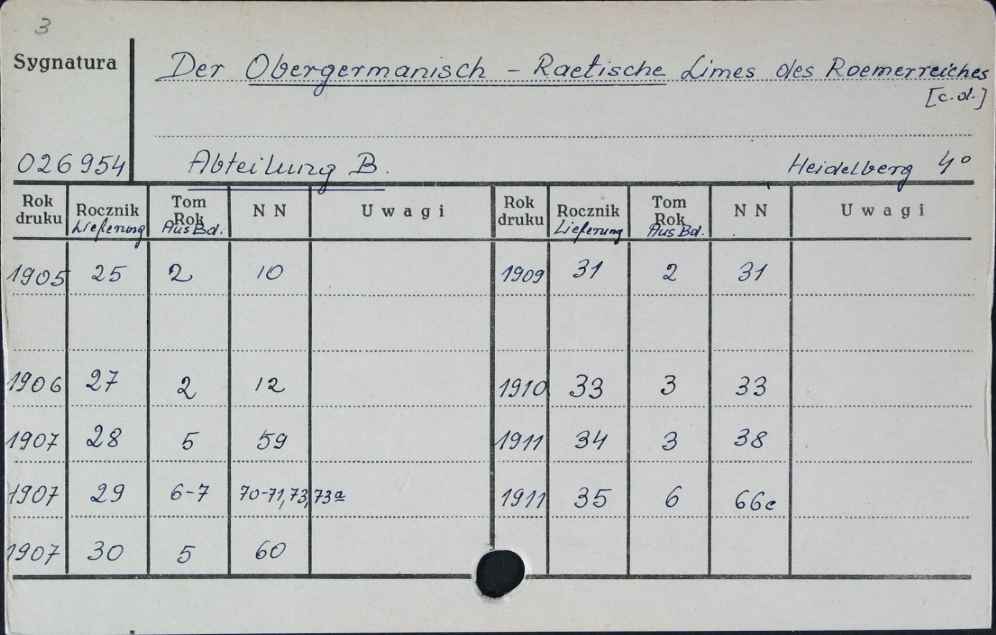 3
Sygnatura
Der Obergermanisch - Raetische Limes des Roemerreiches
[c.d.]
026954 Abteilung B. Heidelberg 4°
Rok druku Rocznik Lieferung Tom Rok Aus Bd. N N Uwagi Rok druku Rocznik Lieferung Tom Rok Aus Bd. N N Uwagi
1905 25 2 10 1909 31 2 31
1906 27 2 12 1910 33 3 33
1907 28 5 59 1911 34 3 38
1907 29 6-7 70-71,73,73a 1911 35 6 66c
1907 30 5 60